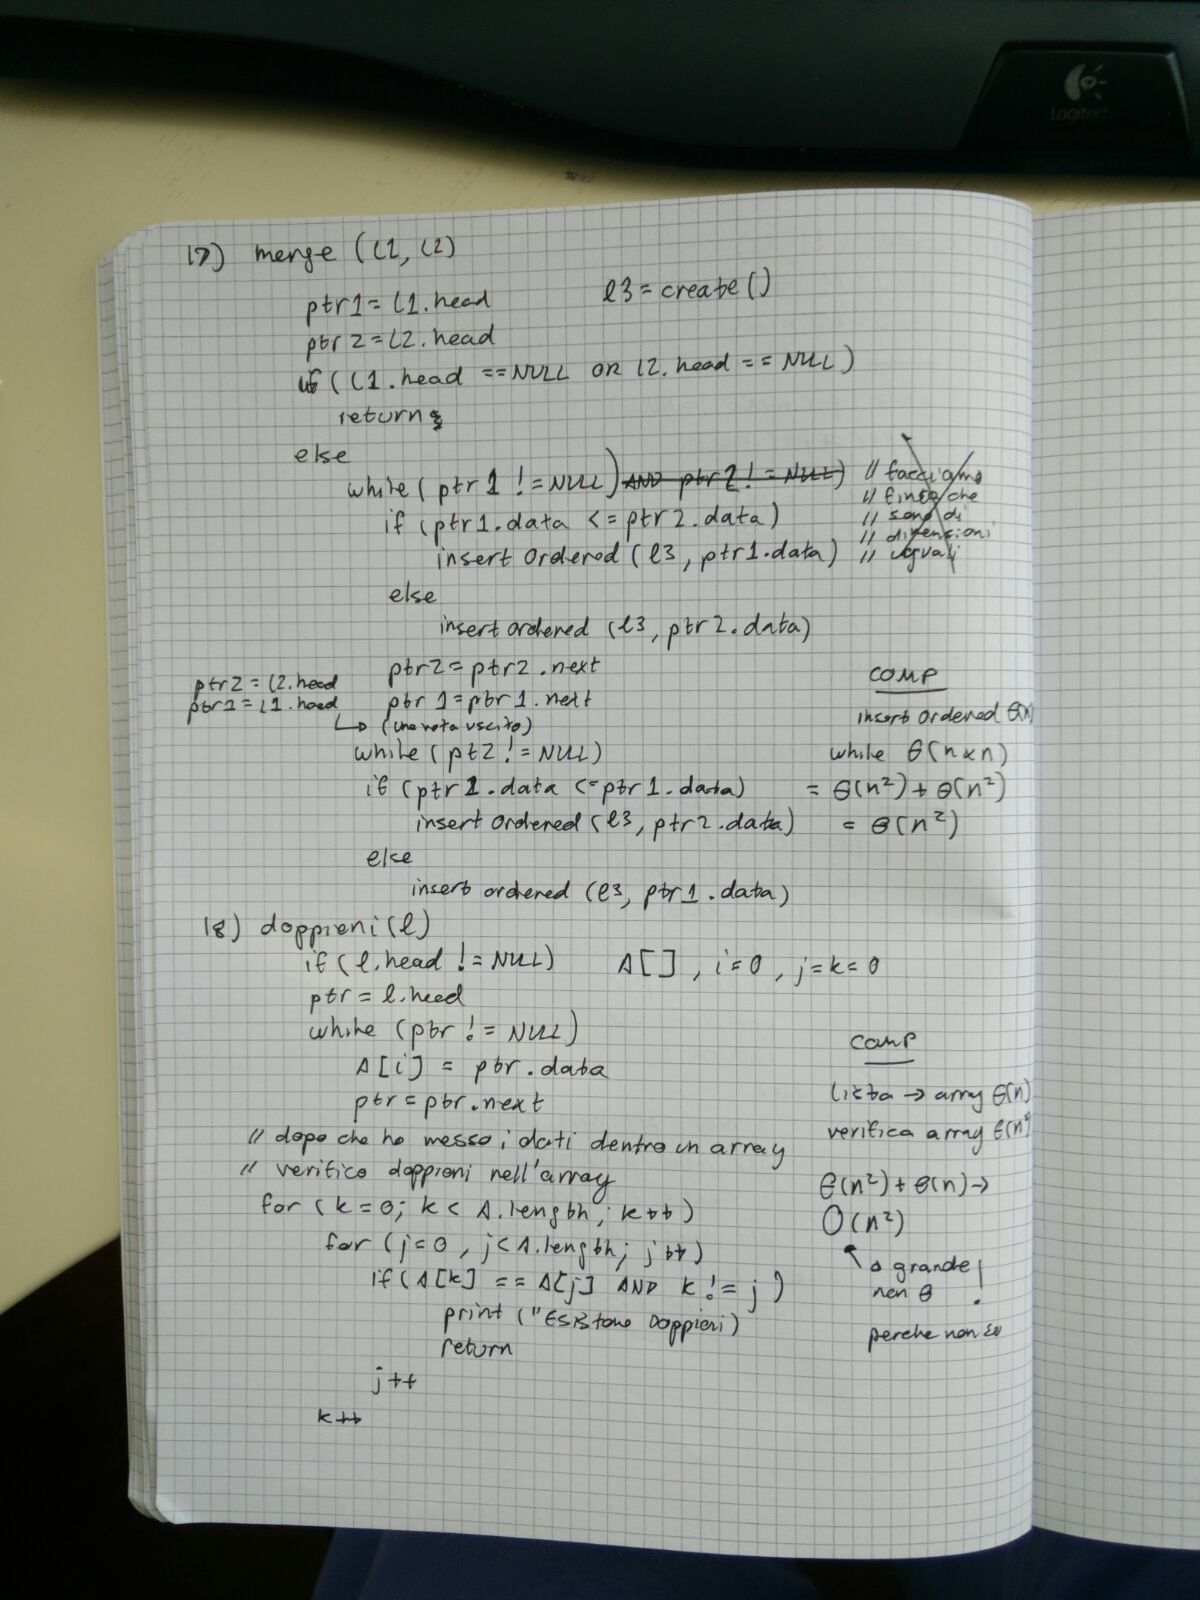 Logitech
17) merge (L1, L2)
ptr1 = L1.head
l3 = create()
ptr2 = L2.head
if (L1.head == NULL OR L2.head == NULL)
return;
else
while (ptr1 != NULL) AND ptr2 != NULL) // facciamo
// finta che
if (ptr1.data <= ptr2.data) // sono di
// dimensioni
insert ordered (l3, ptr1.data) // uguali
else
insert ordered (l3, ptr2.data)
ptr2 = ptr2.next
ptr1 = ptr1.next
ptr2 = L2.head
ptr1 = L1.head
↳ (una volta uscito)
while (pt2 != NULL)
if (ptr2.data <= ptr1.data)
insert ordered (l3, ptr2.data)
else
insert ordered (l3, ptr1.data)
COMP
insert ordered θ(n)
while θ(n×n)
= θ(n²) + θ(n²)
= θ(n²)
18) doppioni (l)
if (l.head != NULL) A[], i=0, j=k=0
ptr = l.head
while (ptr != NULL)
A[i] = ptr.data
ptr = ptr.next
// dopo che ho messo i dati dentro un array
// verifico doppioni nell'array
for (k=0; k < A.length; k++)
for (j=0, j<A.length; j++)
if (A[k] == A[j] AND k != j)
print ("Esistono Doppioni)
return
j++
k++
COMP
lista → array θ(n)
verifica array θ(n²)
θ(n²) + θ(n) →
O(n²)
o grande
non θ !
perche non so